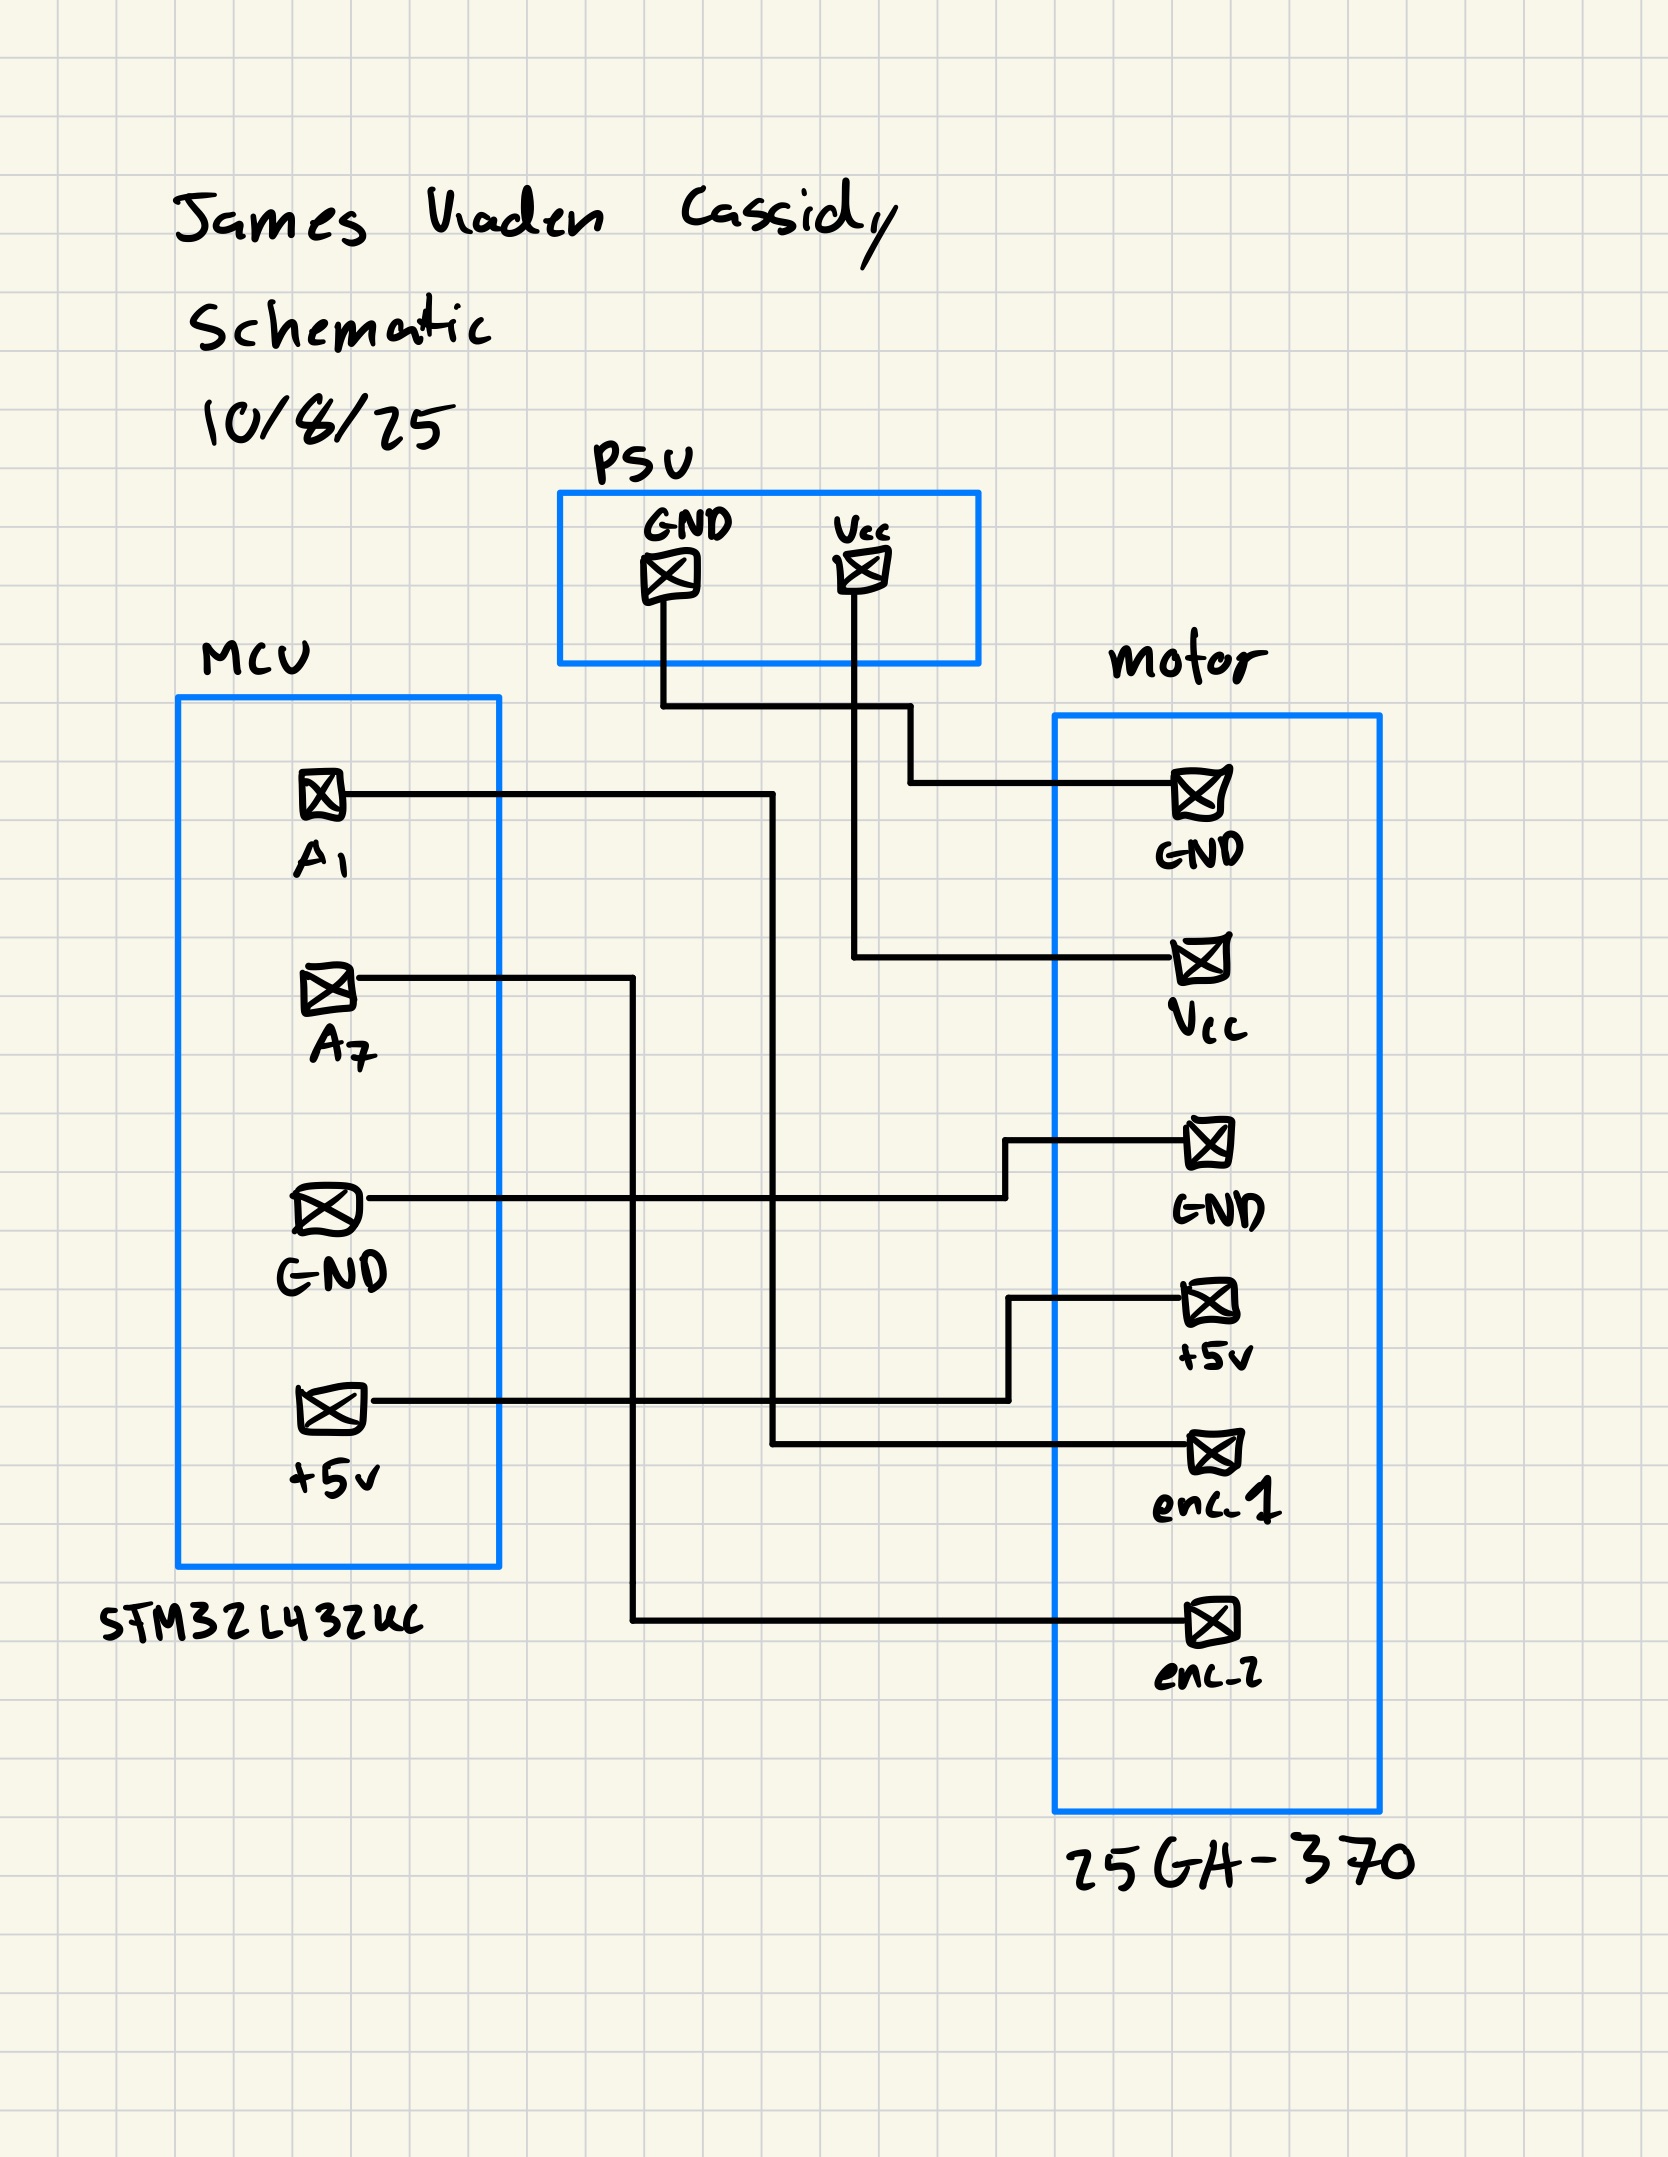 James Vladen Cassidy
Schematic
10/8/25
PSU
GND Vcc
MCU
motor
A1
GND
A7
Vcc
GND
GND
+5v
+5v
enc_1
STM32L432KC
enc_2
25GA-370